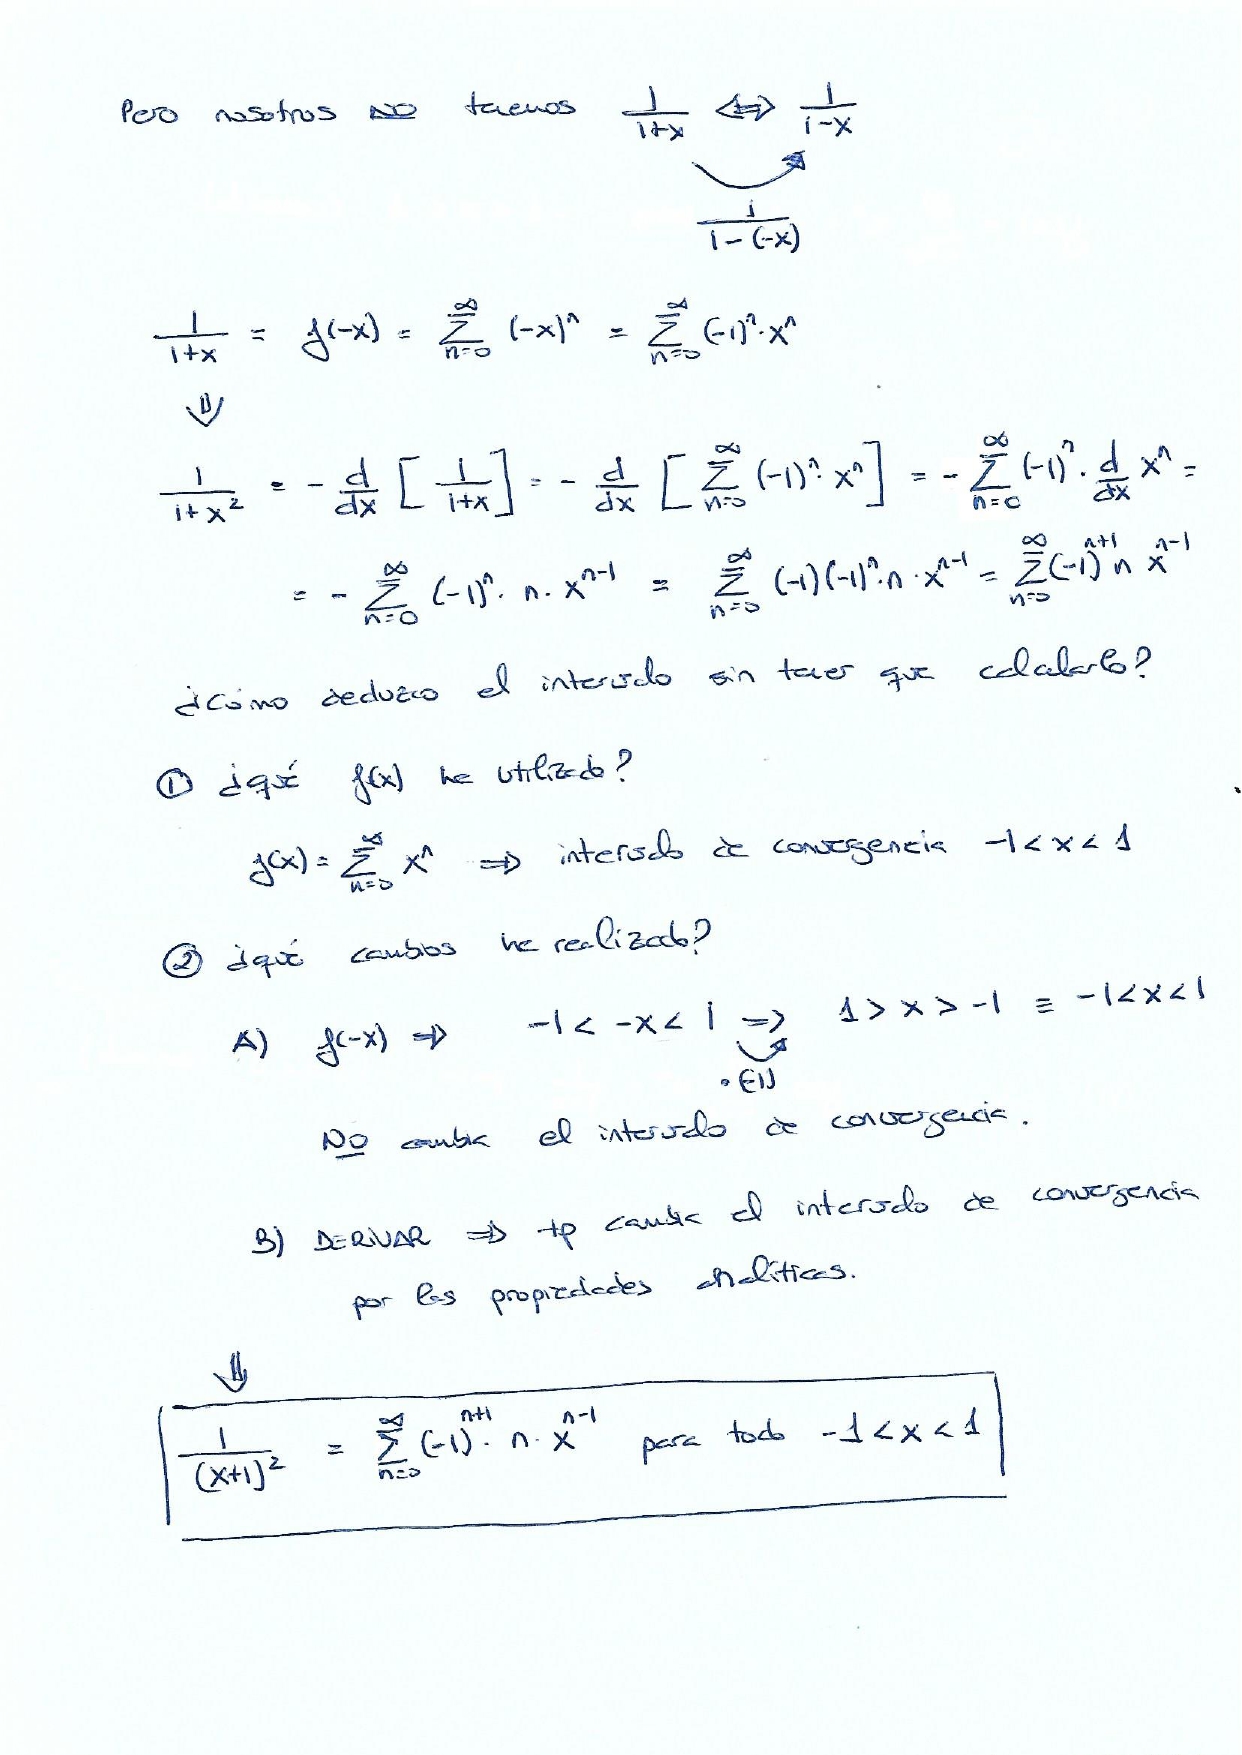 Pero nosotros NO tenemos 1/(1+x) <=> 1/(1-x)
1/(1-(-x))
1/(1+x) = f(-x) = ∑_{n=0}^{∞} (-x)^n = ∑_{n=0}^{∞} (-1)^n · x^n
⇓
1/(1+x^2) = - d/dx [1/(1+x)] = - d/dx [∑_{n=0}^{∞} (-1)^n · x^n] = - ∑_{n=0}^{∞} (-1)^n · d/dx x^n =
= - ∑_{n=0}^{∞} (-1)^n · n · x^{n-1} = ∑_{n=0}^{∞} (-1)(-1)^n · n · x^{n-1} = ∑_{n=0}^{∞} (-1)^{n+1} n x^{n-1}
¿Cómo deduzco el intervalo sin tener que calcularlo?
① ¿qué f(x) he utilizado?
f(x) = ∑_{n=0}^{∞} x^n ⇒ intervalo de convergencia -1 < x < 1
② ¿qué cambios he realizado?
A) f(-x) ⇒ -1 < -x < 1 ⇒ 1 > x > -1 ≡ -1 < x < 1
·(-1)
NO cambia el intervalo de convergencia.
B) DERIVAR ⇒ tp cambia el intervalo de convergencia
por las propiedades analíticas.
⇓
1/(x+1)^2 = ∑_{n=0}^{∞} (-1)^{n+1} · n · x^{n-1} para todo -1 < x < 1